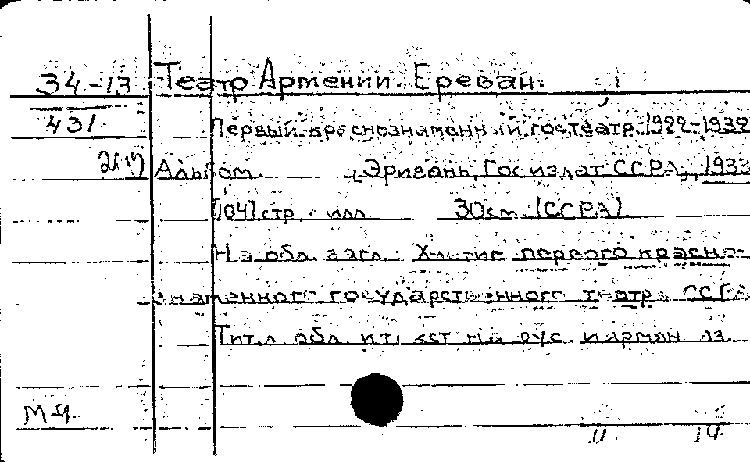 34-13 Театр Армении. Ереван.
431. Первый краснознаменный гостеатр. 1922-1932
Альбом. Эривань, Госиздат ССРА, 1933
[104] стр. илл. 30см. (ССРА)
На обл. загл.: первого красно-
знаменного государственного театра ССРА
Тит.л. обл. и текст на рус. и армян. яз.